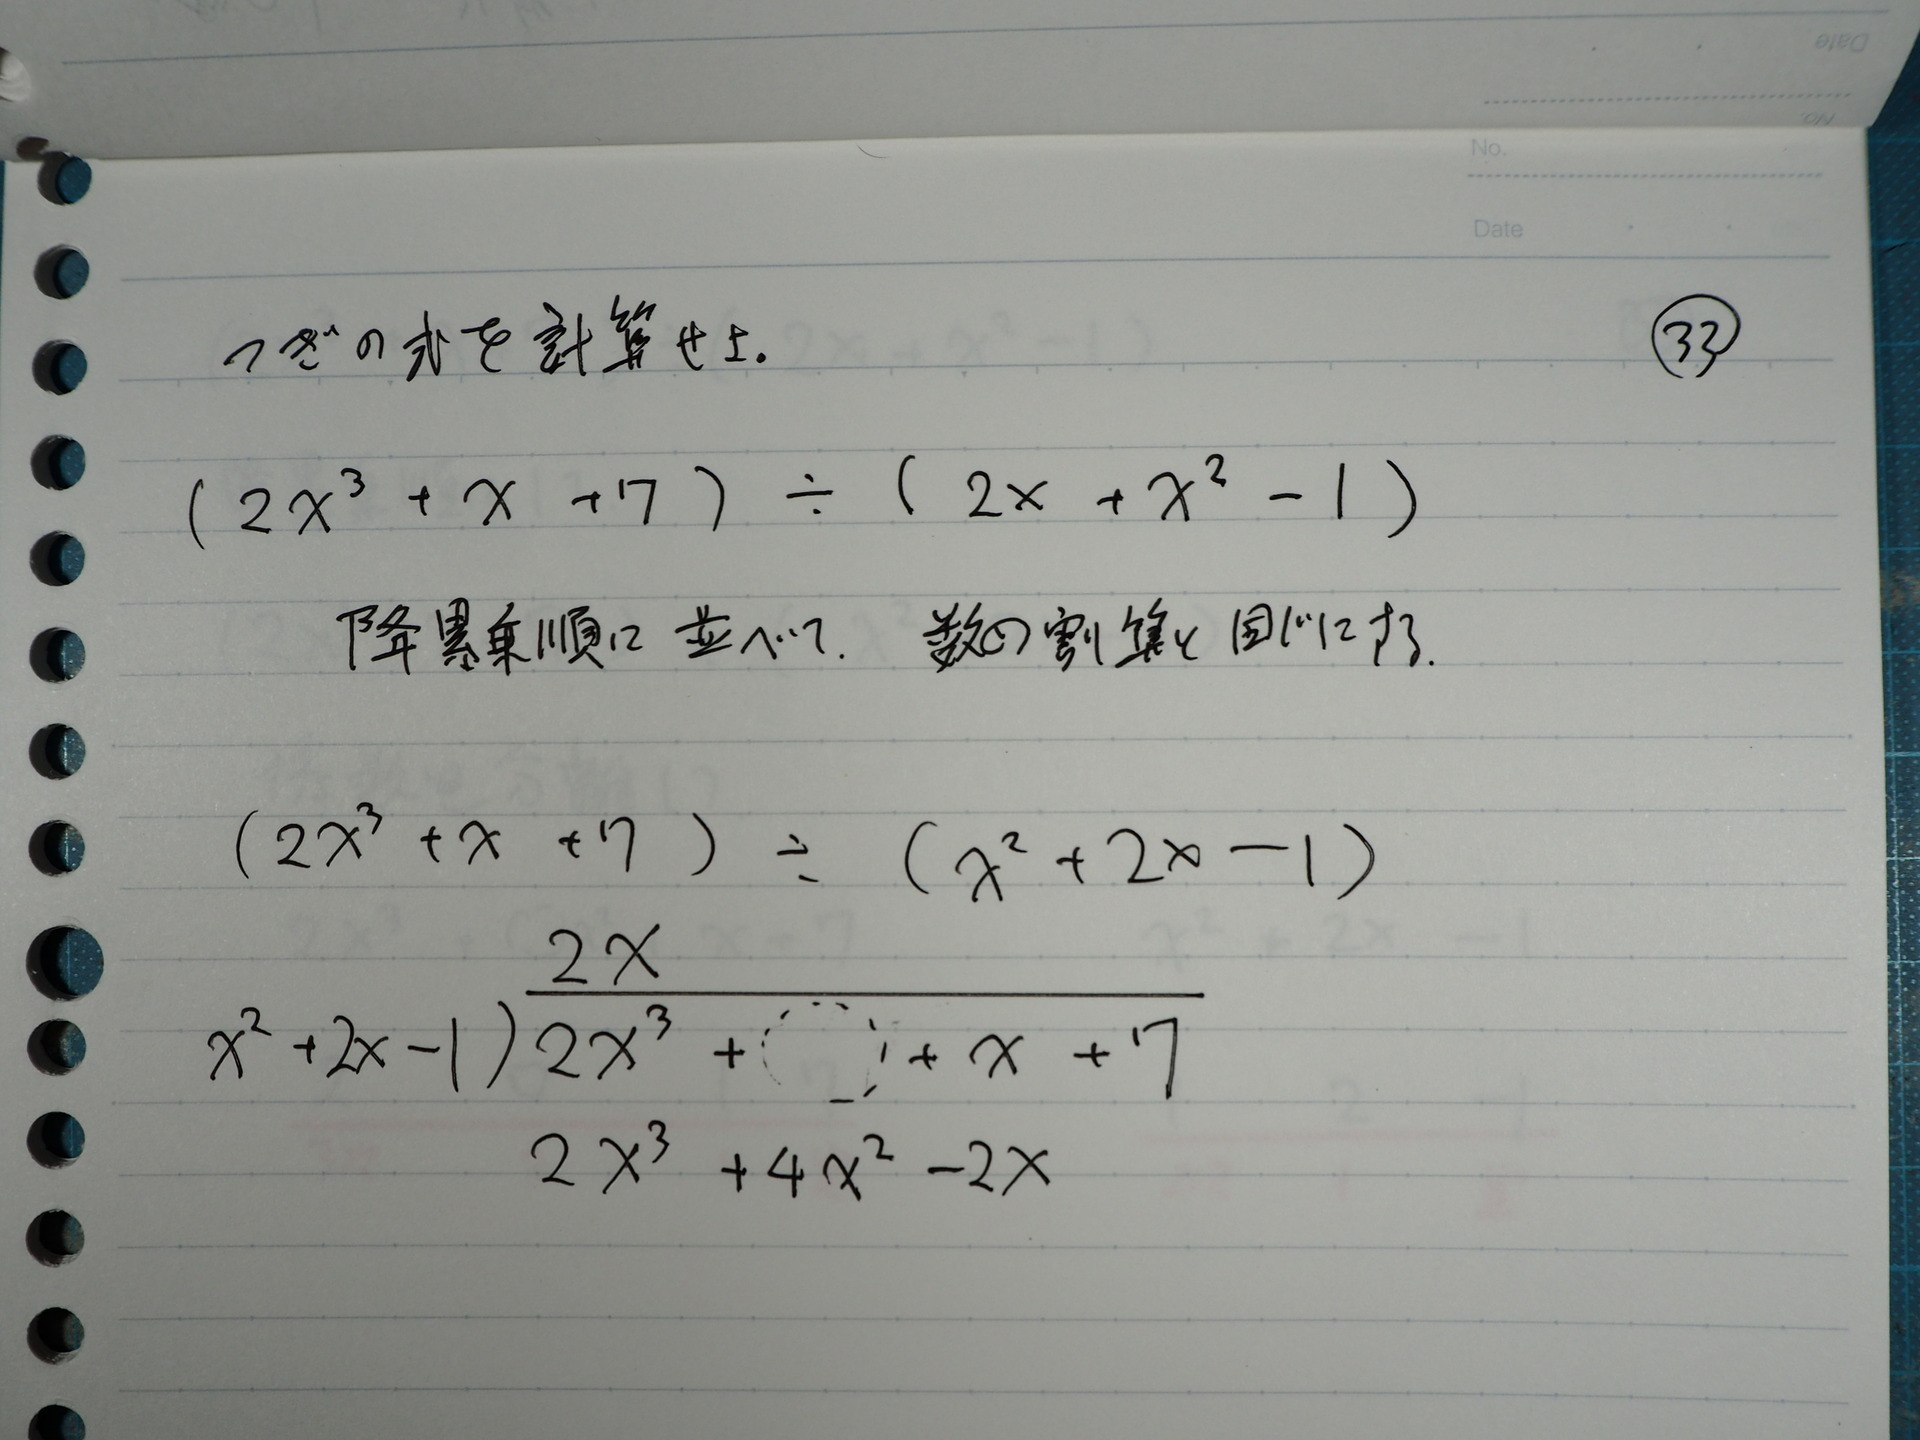 No.
Date
つぎの式を計算せよ. ㉝
(2x³ + x + 7) ÷ (2x + x² - 1)
降累乗順に並べて. 数の割算と同じにする.
(2x³ + x + 7) ÷ (x² + 2x - 1)
2x
x² + 2x - 1) 2x³ + + x + 7
2x³ + 4x² - 2x